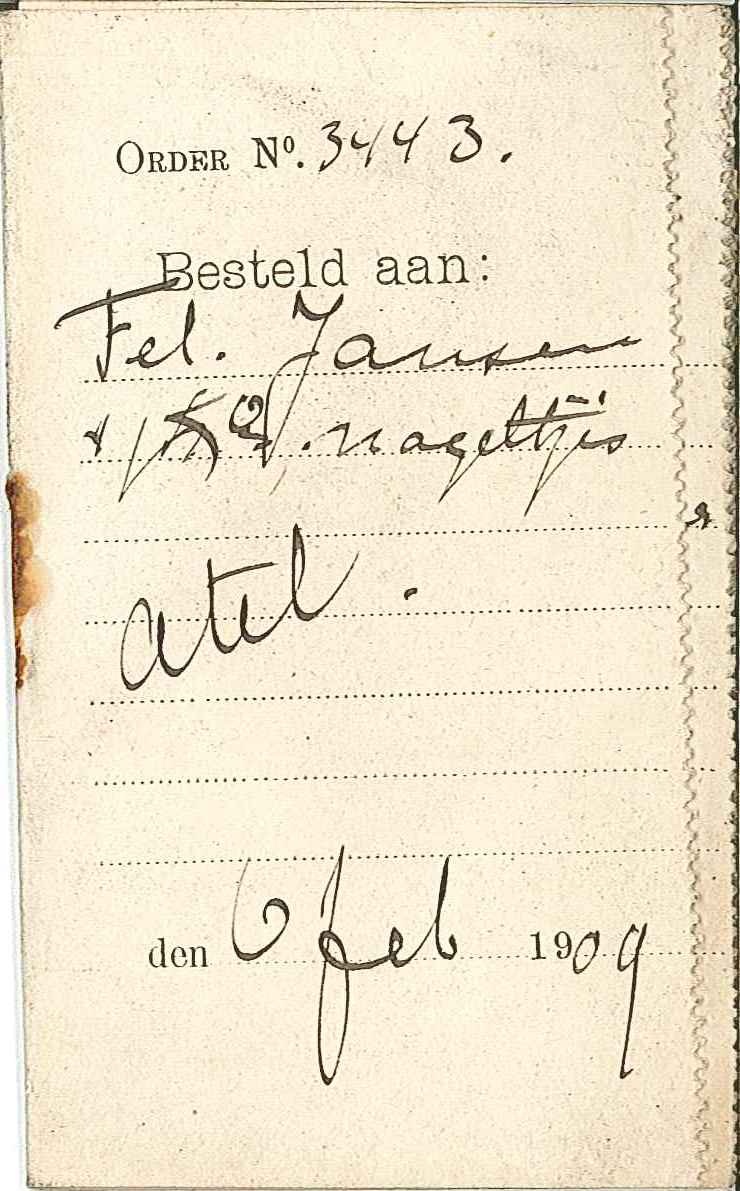 ORDER Nº. 3443.
Besteld aan:
Fel. Jansen
nageltjes
atel.
den 6 feb 1909